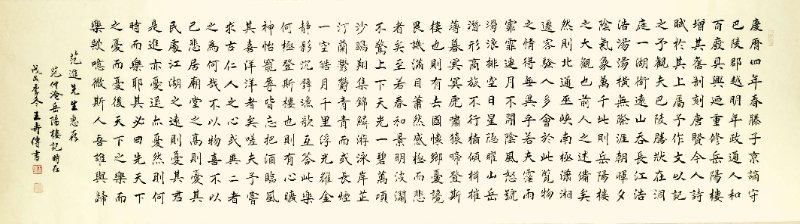 慶曆四年春滕子京謫守
巴陵郡越明年政通人和
百廢具興迺重修岳陽樓
增其舊制刻唐賢今人詩
賦於其上屬予作文以記
之予觀夫巴陵勝狀在洞
庭一湖銜遠山吞長江浩
浩湯湯橫無際涯朝暉夕
陰氣象萬千此則岳陽樓
之大觀也前人之述備矣
然則北通巫峽南極瀟湘
遷客騷人多會於此覽物
之情得毋異乎若夫霪雨
霏霏連月不開陰風怒號
濁浪排空日星隱曜山岳
潛形商旅不行檣傾楫摧
薄暮冥冥虎嘯猿啼登斯
樓也則有去國懷鄉憂讒
畏譏滿目蕭然感極而悲
者矣至若春和景明波瀾
不驚上下天光一碧萬頃
沙鷗翔集錦鱗游泳岸芷
汀蘭鬱鬱青青而或長煙
一空皓月千里浮光躍金
靜影沉璧漁歌互答此樂
何極登斯樓也則有心曠
神怡寵辱皆忘把酒臨風
其喜洋洋者矣嗟夫予嘗
求古仁人之心或異二者
之為何哉不以物喜不以
己悲居廟堂之高則憂其
民處江湖之遠則憂其君
是進亦憂退亦憂然則何
時而樂耶其必曰先天下
之憂而憂後天下之樂而
樂歟噫微斯人吾誰與歸
范進先生惠存
范仲淹岳陽樓記時在
戊戌季冬王壽傳書